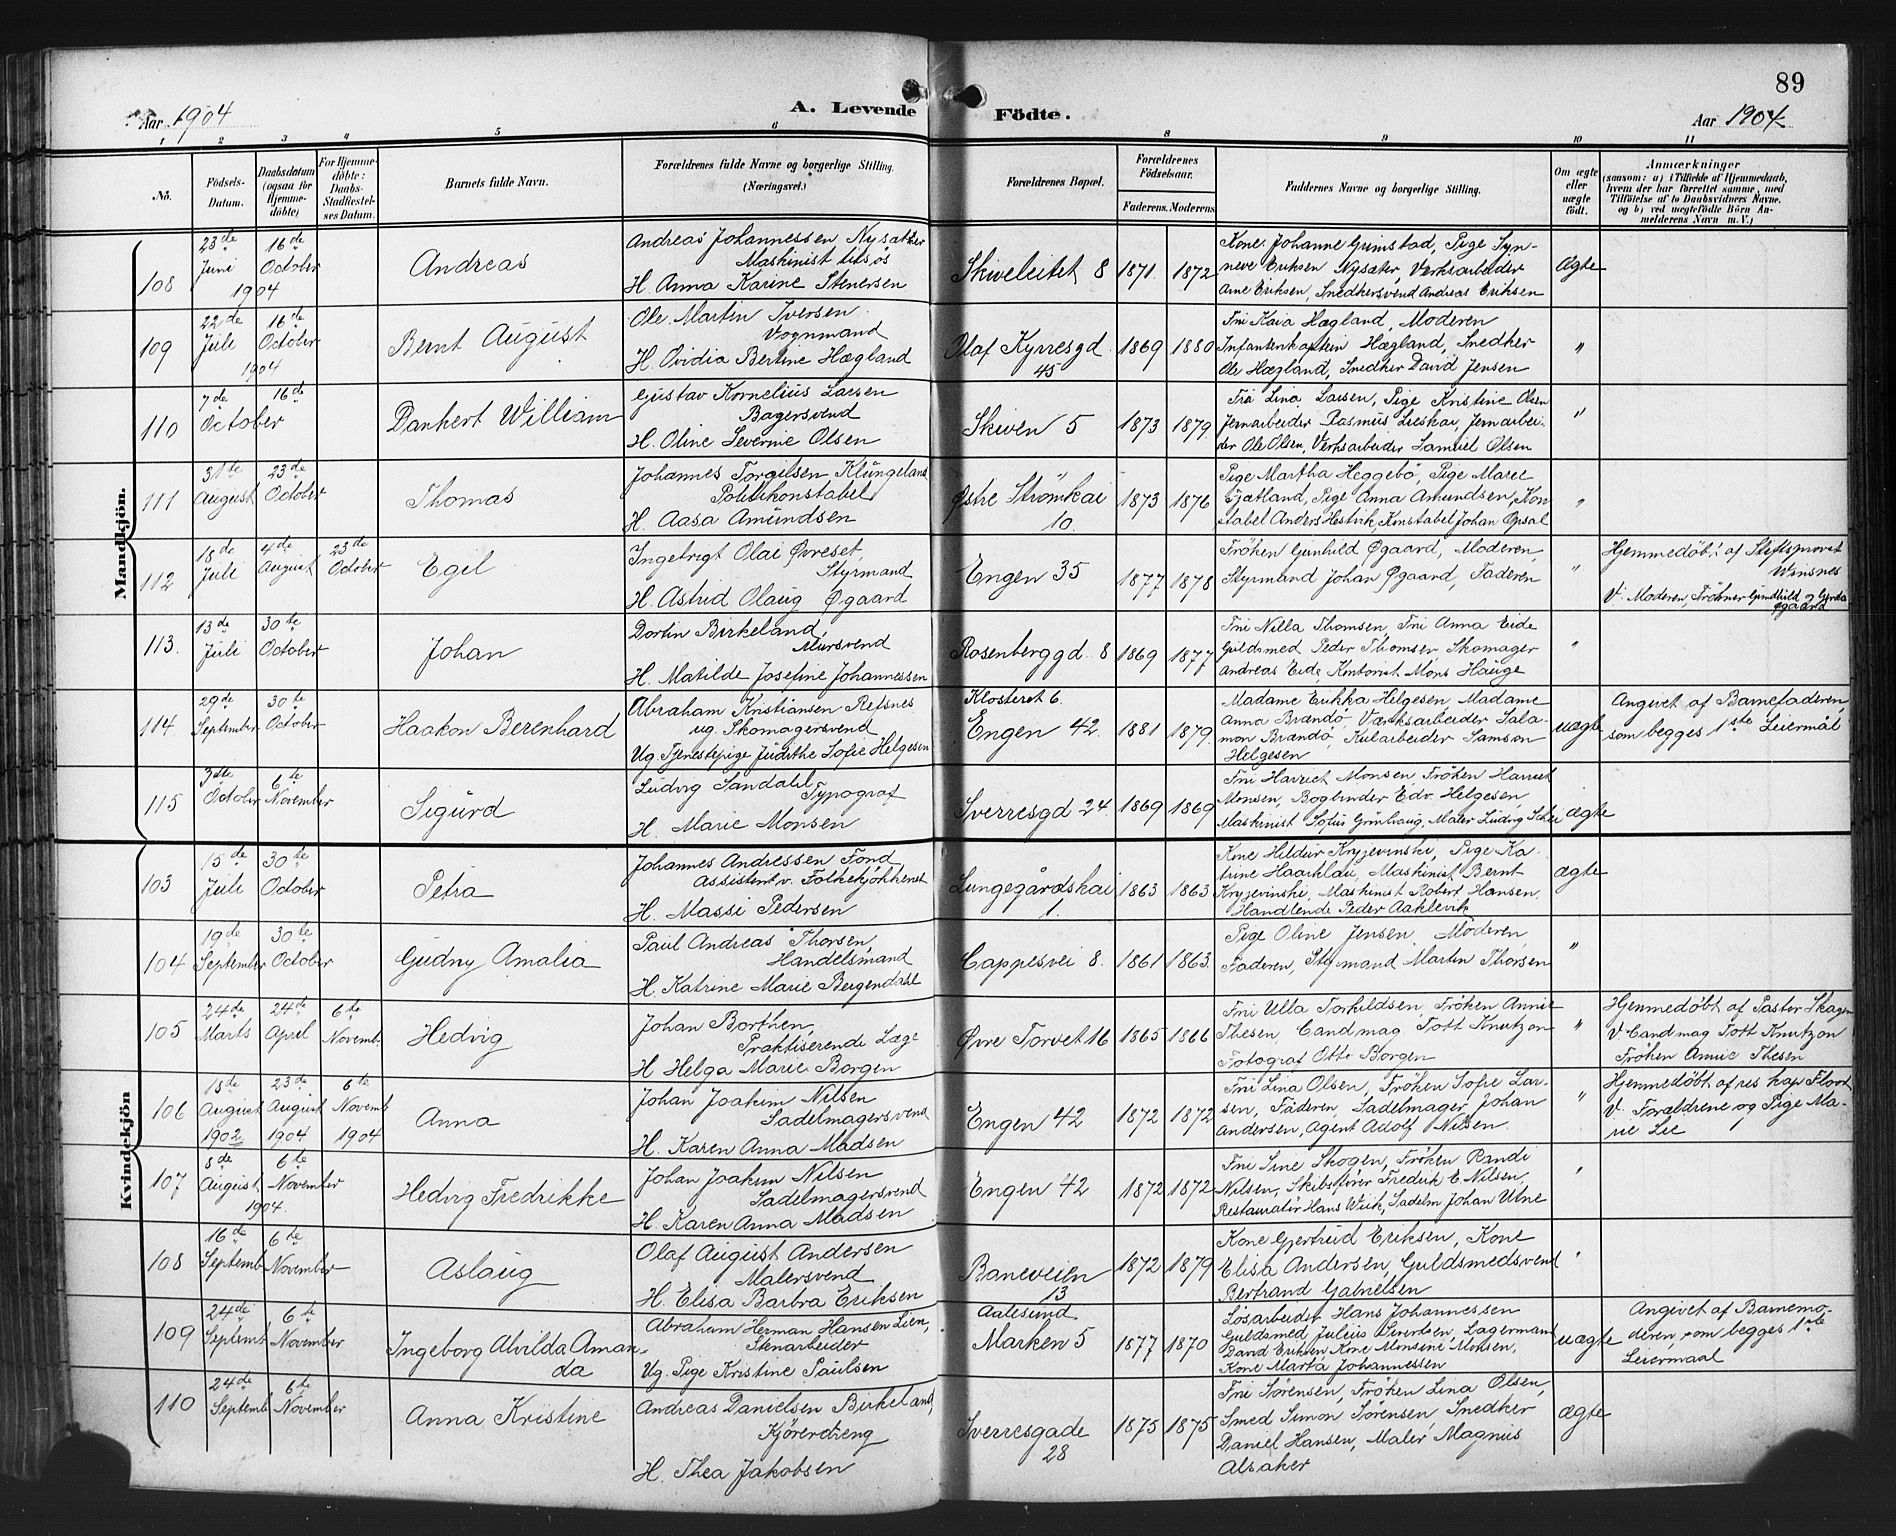 89
Aar 1904
A. Levende
Födte.
Aar 1904
1 2 3 4 5 6 8 9 10 11
No.
Födsels-
Datum.
Daabsdatum
(ogsaa for
Hjemme-
döbte)
For Hjemme-
döbte:
Daabs-
Stadfæstel-
ses Datum.
Barnets fulde Navn.
Forældrenes fulde Navne og borgerlige Stilling.
(Næringsvei.)
Forældrenes Bopæl.
Forældrenes
Födselsaar.
Faderens. Moderens
Faddernes Navne og borgerlige Stilling.
Om ægte
eller
uægte
födt.
Anmærkninger
(saasom: a) i Tilfælde af Hjemmedaab,
hvem der har forrettet samme, med
Tilföielse af to Daabsvidners Navne.
og b) ved uægtefödte Börn An-
melderens Navn m. V.)
Mandkjön.
108
23de Juni
16de October
1904
Andreas
Andreas Johannessen Nysæther
Maskinist tilsøs
H. Anna Karine Stenersen
Skiveleitet 8
1871. 1872
Kone Johanne Grimstad, Pige Syn-
neve Eriksen Nysæter, Verksarbeider
Arne Eriksen, Snedkersvend Andreas Eriksen
Ægte
109
22de Juli
16de October
1904
Bernt August
Ole Martin Iversen
Vognmand
H. Ovidia Bertine Hægland
Olaf Kyrresgd
45
1869 1880
Fru Kaia Hægland, Moderen
Infanterikaptein Hægland, Snedker
Ole Hægland, Snedker David Jensen
"
110
7de October
16de
Dankert William
Gustav Kornelius Larsen
Bagersvend
H. Oline Severine Olsen
Skiven 5
1873 1879.
Fru Lina Larsen, Pige Kristine Olsen
Jernarbeider Rasmus Lieskar, Jernarbei-
der Ole Olsen, Verksarbeider Samuel Olsen
"
111
31te August
23de October
Thomas
Johannes Torgilsen Klungeland
Politikonstabel
H. Aasa Amundsen
Østre Strömkai
10.
1873 1876
Pige Martha Heggebö, Pige Marie
Gjøtland, Pige Anna Amundsen, Kon-
stabel Anders Hestvik, Konstabel Johan Opsal
"
112
18de Juli
4de August
23de October
Egil
Ingebrigt Olai Øvreset,
Styrmand
H. Astrid Olaug Øgaard
Engen 35
1877 1878
Fröken Gunhild Øgaard, Moderen,
Styrmand Johan Øgaard, Faderen
"
Hjemmedøbt af Stiftsprovst
Winsnes
V. Moderen, Frökner Gundhild og Gerda
Øgaard
113.
13de Juli
30te October
Johan
Dortin Birkeland,
Mursvend
H. Matilde Josefine Johannessen
Rosenberggd. 8
1869 1877
Fru Nilla Thomsen, Fru Anna Eide
Guldsmed Peder Thomsen Skomager
Andreas Eide, Kontorist Mons Hauge
"
114
29de September
30te October
Haakon Berenhard
Abraham Kristiansen Refsnes
ug. Skomagersvend
Ug. Tjenestepige Judithe Sofie Helgesen
Klosteret 6.
Engen 42.
1881 1879.
Madame Erikka Helgesen, Madame
Anna Brandö, Værksarbeider Sala-
mon Brandö, Kularbeider Samson
Helgesen
uægte
Angivet af Barnefaderen,
som begges 1ste Leiermål
115
3die October
6te November
Sigurd
Ludvig Sandahl
Typograf
H. Marie Monsen
Sverresgd 24.
1869 1869
Fru Harriet Monsen Fröken Harriet
Monsen, Bogbinder Edv. Helgesen,
Maskinist Sofus Grünhaug, Maler Ludvig Schei
ægte
Kvindekjön
103
15de Juli
30te October
Petra
Johannes Andressen Fond,
Assistent v. Folkekjøkkenet
H. Massi Pedersen
Lungegårdskai
1.
1863 1863
Kone Hildur Kryjevinski, Pige Ka-
trine Haarklau, Maskinist Bernt
Kryjevinski, Maskinist Robert Hansen,
Handlende Peder Aaklevik
Ægte
104
19de September
30te October
Gudny Amalia
Paul Andreas Thorsen,
Handelsmand
H. Katrine Marie Bergendahl
Cappesvei 8.
1861 1863.
Pige Oline Jensen, Moderen
Faderen, Styrmand Martin Thorsen
"
105
24de Marts
24de April
6te Novemb.
Hedvig
Johan Borthen,
Praktiserende Læge
H Helga Marie Borgen
Øvre Torvet 16
1865 1866
Fru Ulla Torkildsen, Fröken Annie
Thesen, Cand mag Tott Knutzon
Fotograf Otto Borgen
"
Hjemmedøbt af Pastor Skagen
V Cand mag Tott Knutzon
Fröken Annie Thesen
106
18de August 1902
23de August 1904
6te Novemb 1904
Anna
Johan Joakim Nilsen
Sadelmagersvend
H. Karen Anna Madsen
Engen 42
1872 1872
Fru Lina Olsen, Fröken Sofie Lar-
sen, Faderen, Sadelmager Johan
Andersen, Agent Adolf Nilsen
"
Hjemmedøbt af res kap Floor
V. Forældrene og Pige Ma-
rie Lie
107
8de August
6te November
1904.
Hedvig Fredrikke
Johan Joakim Nilsen
Sadelmagersvend
H. Karen Anna Madsen
Engen 42
1872 1872
Fru Sine Skogen, Fröken Randi
Nilsen, Skibsfører Fredrik E. Nilsen,
Restauratör Hans Wiik, Sadelm Johan Utne
"
108
16de Septemb
6te November
Aslaug
Olaf August Andersen
Malersvend
H. Elisa Barbra Eriksen
Baneveien
13
1872 1879
Kone Gjertrud Eriksen, Kone
Elisa Andersen, Guldsmedsvend
Bertrand Gabrielsen
"
109
24de Septemb
6te November
Ingeborg Alvilda Aman-
da
Abraham Herman Hansen Lien,
Stenarbeider
Ug. Pige Kristine Paulsen
Aalesund
Marken 5
1877 1870
Løsarbeider Hans Johannessen
Guldsmed Julius Sivertsen, Lagermand
David Eriksen, Kone Monsine Monsen,
Kone Marta Johannessen
uægte
Angivet af Barnemo-
deren, som begges 1ste
Leiermaal
110
24de Septemb
6te November
Anna Kristine
Andreas Danielsen Birkeland,
Kjøredreng
H. Thea Jakobsen
Sverresgade
28
1875 1875
Fru Sørensen, Fröken Lina Olsen,
Smed Simon Sørensen, Snedker
Daniel Hansen, Maler Magnus
Alsaker
Ægte